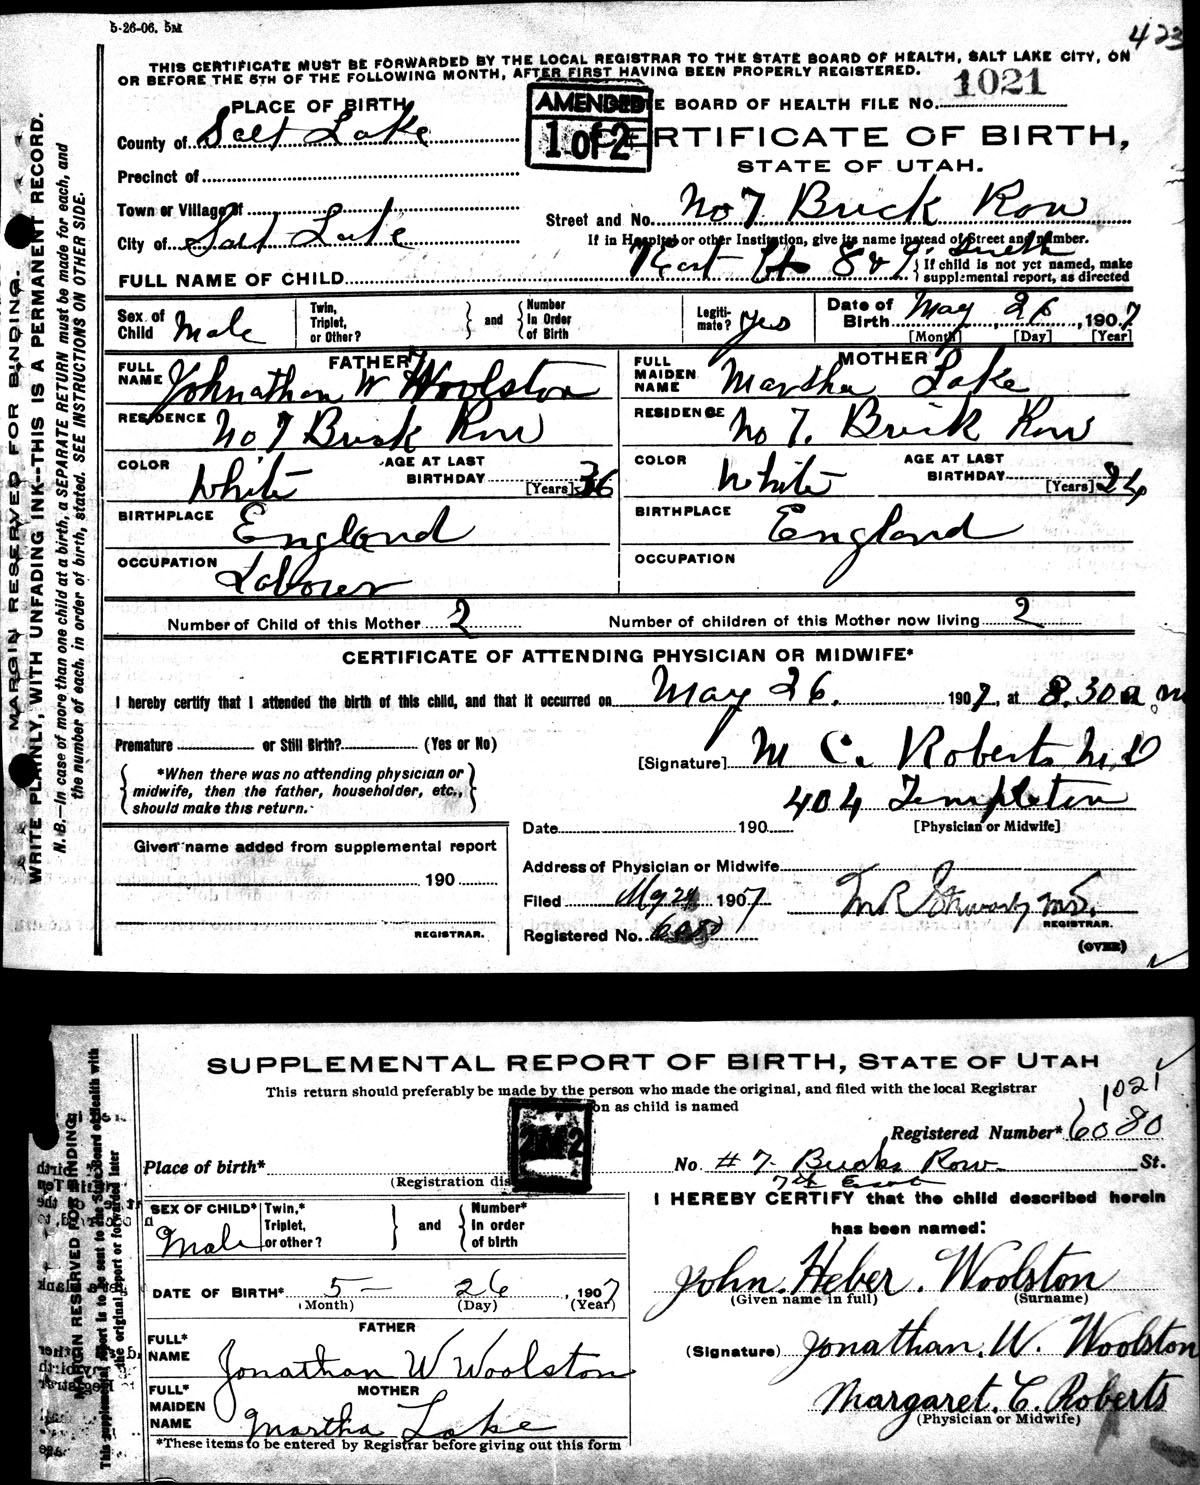 5-26-06. 5M
423
THIS CERTIFICATE MUST BE FORWARDED BY THE LOCAL REGISTRAR TO THE STATE BOARD OF HEALTH, SALT LAKE CITY, ON
OR BEFORE THE 5TH OF THE FOLLOWING MONTH, AFTER FIRST HAVING BEEN PROPERLY REGISTERED.
AMENDED
1 of 2
E BOARD OF HEALTH FILE No. 1021
PLACE OF BIRTH
CERTIFICATE OF BIRTH,
STATE OF UTAH.
County of Salt Lake
Precinct of
Town or Village of
Street and No. No 7 Brick Row
City of Salt Lake
If in Hospital or other Institution, give its name instead of Street and number.
East 8 & 9 South
FULL NAME OF CHILD
{ If child is not yet named, make
supplemental report, as directed
Sex of Child Male
Twin, Triplet, or Other? } and { Number In Order of Birth
Legitimate? yes
Date of Birth May 26, 1907
[Month] [Day] [Year]
FATHER
FULL NAME Johnathan W Woolston
MOTHER
FULL MAIDEN NAME Marsha Lake
RESIDENCE No 7 Brick Row
RESIDENCE No 7. Brick Row
COLOR White AGE AT LAST BIRTHDAY 36 [Years]
COLOR White AGE AT LAST BIRTHDAY 24 [Years]
BIRTHPLACE England
BIRTHPLACE England
OCCUPATION Laborer
OCCUPATION
Number of Child of this Mother 2 Number of children of this Mother now living 2
CERTIFICATE OF ATTENDING PHYSICIAN OR MIDWIFE*
I hereby certify that I attended the birth of this child, and that it occurred on May 26. 1907, at 8.30 a m
Premature or Still Birth? (Yes or No)
[Signature] M C. Roberts M.D
{ *When there was no attending physician or
midwife, then the father, householder, etc.,
should make this return. }
404 Templeton
[Physician or Midwife]
Date 190
Given name added from supplemental report
190
REGISTRAR.
Address of Physician or Midwife
Filed 1907
Registered No.
REGISTRAR.
(OVER)
MARGIN RESERVED FOR BINDING.
WRITE PLAINLY, WITH UNFADING INK--THIS IS A PERMANENT RECORD.
N. B.—In case of more than one child at a birth, a SEPARATE RETURN must be made for each, and
the number of each, in order of birth, stated. SEE INSTRUCTIONS ON OTHER SIDE.
SUPPLEMENTAL REPORT OF BIRTH, STATE OF UTAH
This return should preferably be made by the person who made the original, and filed with the local Registrar
on as child is named
2 of 2
1021
Registered Number* 6080
Place of birth*
(Registration dis
No. # 7. Bucks Row. St.
7th East
SEX OF CHILD* Male
Twin,* Triplet, or other? } and { Number* In order of birth
I HEREBY CERTIFY that the child described herein
has been named:
DATE OF BIRTH* 5 - 26, 1907
(Month) (Day) (Year)
John. Heber. Woolston
(Given name in full) (Surname)
FATHER
FULL* NAME Jonathan W Woolston
(Signature) Jonathan. W. Woolston
MOTHER
FULL* MAIDEN NAME Martha Lake
Margaret. C. Roberts
(Physician or Midwife)
*These items to be entered by Registrar before giving out this form
MARGIN RESERVED FOR BINDING
This supplemental report is to be sent to the State Board of Health with
the original report or forwarded later